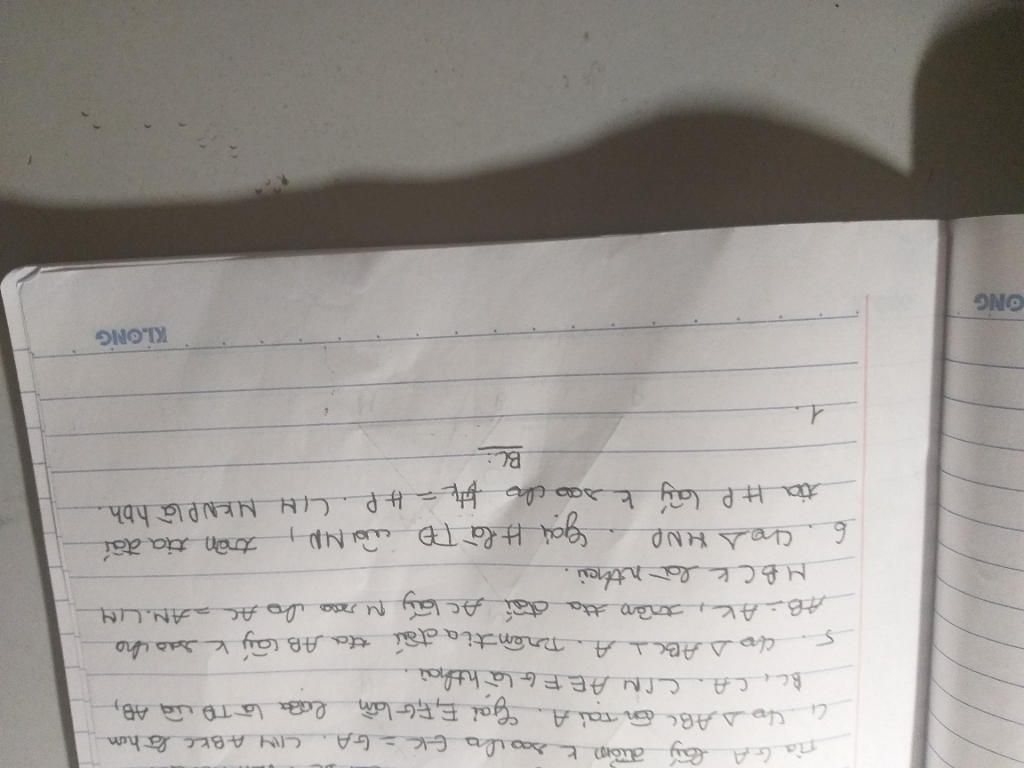 tia GA lấy điểm K sao cho GK = GA. C/M ABKC là hình
4. Cho Δ ABC cân tại A. Gọi E, F, G lần lượt là TĐ của AB,
BC, CA. C/M AEFG là h.thoi.
5. Cho Δ ABC ⊥ A. Trên tia đối tia AB lấy K sao cho
AB = AK, trên tia đối AC lấy M sao cho AC = AM. C/M
MBCK là h.thoi.
6. Cho Δ MNP. Gọi H là TĐ của MN, trên tia đối
tia HP lấy K sao cho HK = HP. C/M MKNP là hbh.
BL:
1.
KLONG
ONG